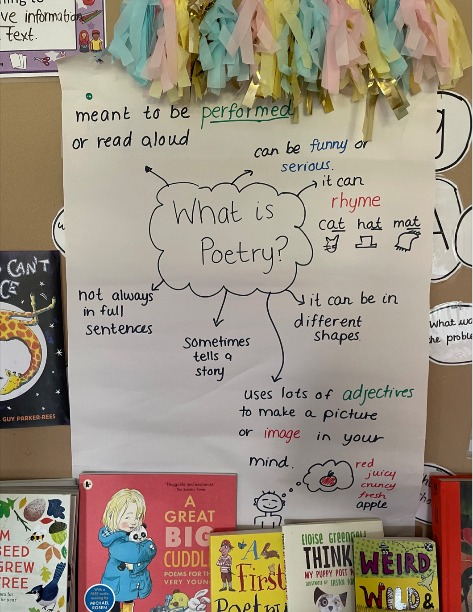 ve information
text.
meant to be performed
or read aloud
can be funny or
serious.
it can
rhyme
cat hat mat
What is
Poetry?
not always
in full
sentences
Sometimes
tells a
story
it can be in
different
shapes
uses lots of adjectives
to make a picture
or image in your
mind.
red
juicy
crunchy
fresh
apple
What wa
the proble
CAN'T
CE
GUY PARKER-REES
M
SEED
GREW
TREE
A
GREAT
BIG
CUDDL
POEMS FOR TH
VERY YOUN
MICHAEL
ROSEN
A
First
Poetry
ELOISE GREENFI
THINK
MY PUPPY POET
WEIRD,
WILD &